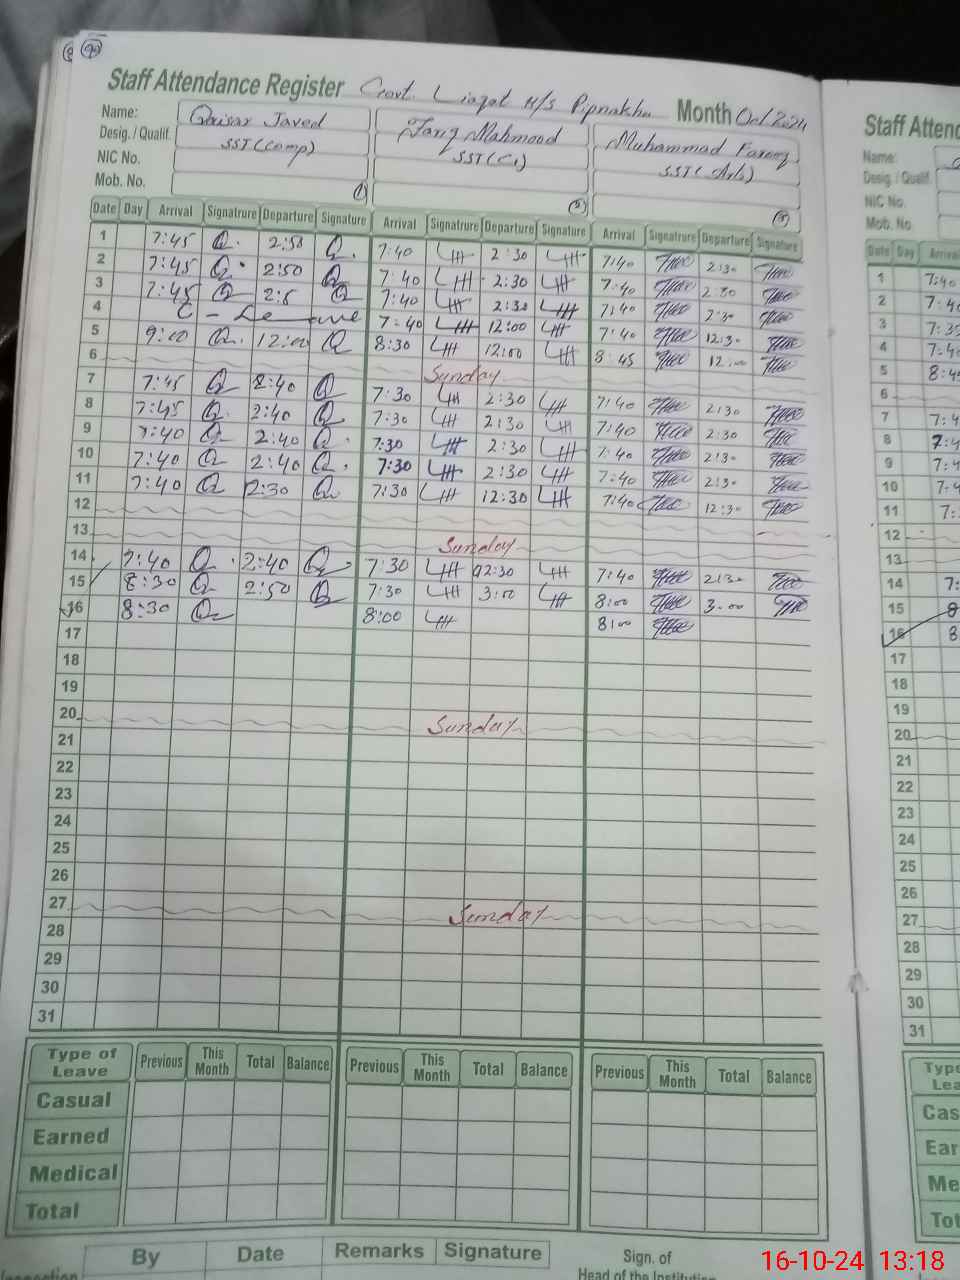 90
Staff Attendance Register Govt. Liaqat H/S Pipnakha Month Oct 2024
Name: Qaisar Javed Tariq Mahmood Muhammad Farooq
Desig. / Qualif. SST (Comp) SST (Sci) SST (Arts)
NIC No.
Mob. No.
Date Day Arrival Signatrure Departure Signature Arrival Signatrure Departure Signature Arrival Signatrure Departure Signature
1 7:45 2:50 7:40 2:30 7:40 2:30
2 7:45 2:50 7:40 2:30 7:40 2:30
3 7:45 7:40 2:30 7:40 2:30
4 C - Leave 7:40 12:00 7:40 12:30
5 9:00 12:00 8:30 12:00 8:45 12:00
6 Sunday
7 7:45 2:40 7:30 2:30 7:40 2:30
8 7:45 2:40 7:30 2:30 7:40 2:30
9 7:40 2:40 7:30 2:30 7:40 2:30
10 7:40 2:40 7:30 2:30 7:40 2:30
11 7:40 12:30 7:30 12:30 7:40 12:30
12
13 Sunday
14 7:40 2:40 7:30 2:30 7:40 2:30
15 8:30 2:50 7:30 3:00 8:00 3:00
16 8:30 8:00 8:00
17
18
19
20 Sunday
21
22
23
24
25
26
27 Sunday
28
29
30
31
Type of Leave Previous This Month Total Balance Previous This Month Total Balance Previous This Month Total Balance
Casual
Earned
Medical
Total
By Date Remarks Signature Sign. of
Head of the Institution
Staff Attend
Name:
Desig. / Qualif
NIC No.
Mob. No.
Date Day Arrival
1 7:40
2
3
4
5
6
7
8
9
10
11
12
13
14
15
16
17
18
19
20
21
22
23
24
25
26
27
28
29
30
31
16-10-24 13:18